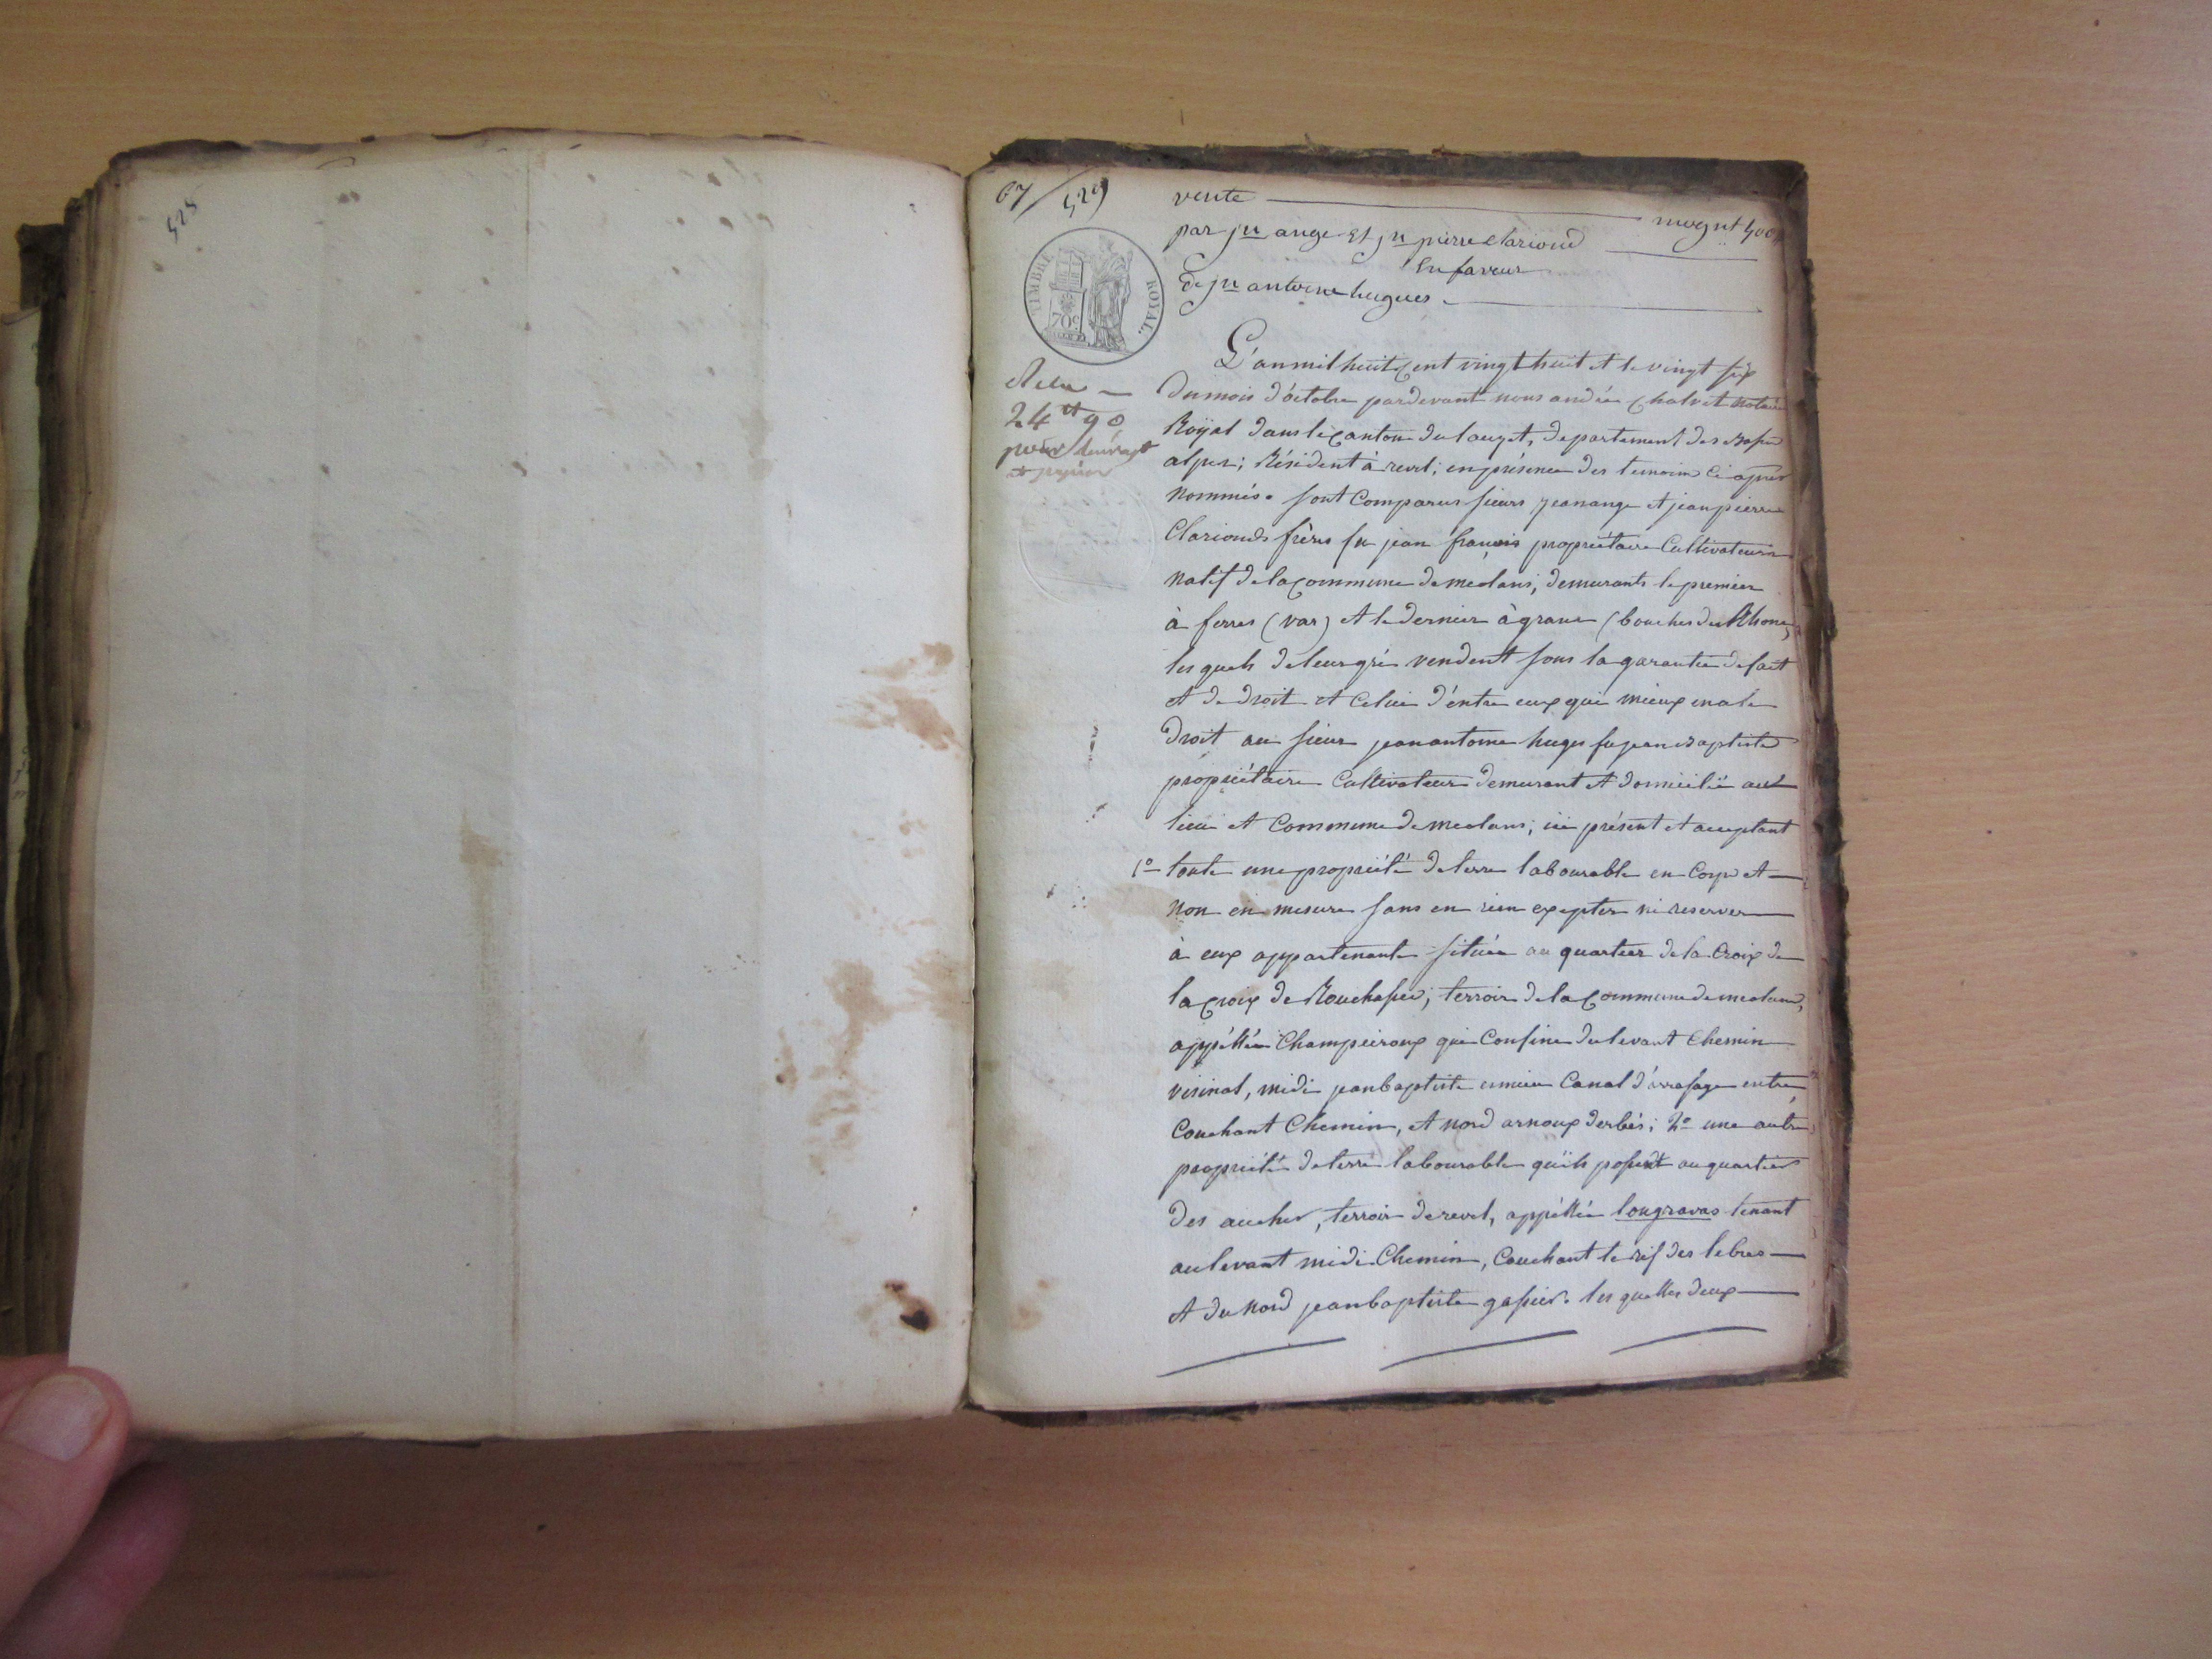 528
67 / 529
vente
moynt 400#
par jn ange Et jn pierre clariond
En faveur
de jn antoine hugues
TIMBRE ROYAL.
70c
L'an mil huit Cent vingt huit et le vingt six
Du mois d'octobre pardevant nous andré Chalvet notaire
Royal dans le Canton du lauzet, departement des Basses
alpes; Résident à revel; en présence des temoins ci après
nommés. sont Comparus sieurs jean ange et jean pierre
Clarionds frères fu jean françois propriétaire Cultivateurs
natif de la Commune de meolans, demurants le premier
à ferres (var) et le dernier à grans (bouches du Rhone)
les quels de leur gré vendent sous la garantie de fait
et de droit et Celui d'entre eux qui mieux en a le
Droit au sieur jean antoine hugues fu jean Baptiste
propriétaire Cultivateur demurant et domicilié aud
lieu et Commune de meolans; ici présent et acceptant
1o toute une propriété de terre labourable en Corps et
non en mesure sans en rien excepter ni reserver
à eux appartenante située au quartier de la Croix de
la Croix de Rouchasses; terroir de la Commune de meolans,
appéllée Champeiroux qui Confine du levant Chemin
visinal, midi jean baptiste Canal d'arrosage entre,
Couchant Chemin, et nord arnoux derbés; 2o une autre
propriété de terre labourable qu'ils possedt au quartier
des auches, terroir de revel, appéllée longravas tenant
au levant midi Chemin, Couchant le rif des lebres
et du nord jean baptiste gassier. les quelles deux
Relu
24tt 90
pour
papier